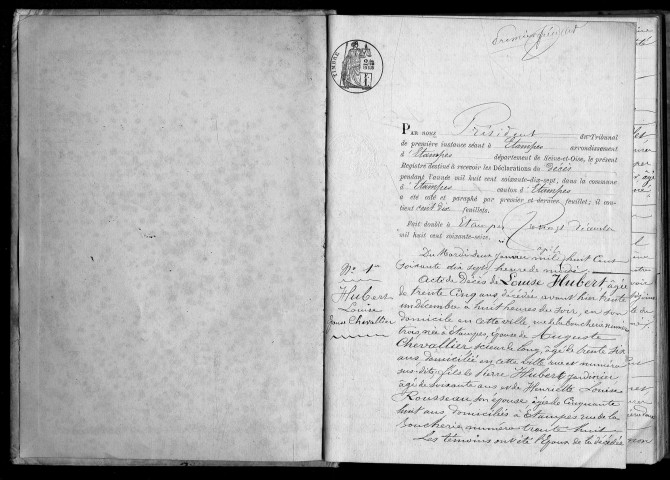 Premier feuillet
TIMBRE
PAR nous Président du Tribunal
de première instance séant à Etampes arrondissement
d'Etampes département de Seine-et-Oise, le présent
Registre destiné à recevoir les Déclarations de Décès
pendant l'année mil huit cent soixante-dix-sept, dans la commune
d'Etampes canton d'Etampes
a été coté et paraphé par premier et dernier feuillet; il con-
tient cent dix feuillets.
Fait double à Etampes, le vingt décembre
mil huit cent soixante-seize.
Du Mardi deux janvier mil huit Cent
soixante dix sept heure de midi
No 1er
Hubert
Louise
femme Chevallier
Acte de Décès de Louise Hubert agée
de trente Cinq ans décédée avant hier trente
un décembre à huit heures du soir, en son
domicile en cette ville, rue de la boucherie numéro
trois, née à Etampes, Epouse de Auguste
Chevallier, scieur de long, agé de trente six
ans, domicilié en cette ville rue et numéro
susdits, fille de Pierre Hubert, jardinier
agé de soixante ans et de Henriette Louise
Rousseau, son épouse, agée de Cinquante
huit ans domiciliés à Etampes rue de la
boucherie numéro trente huit
Les témoins ont été l'Epoux de la décédée